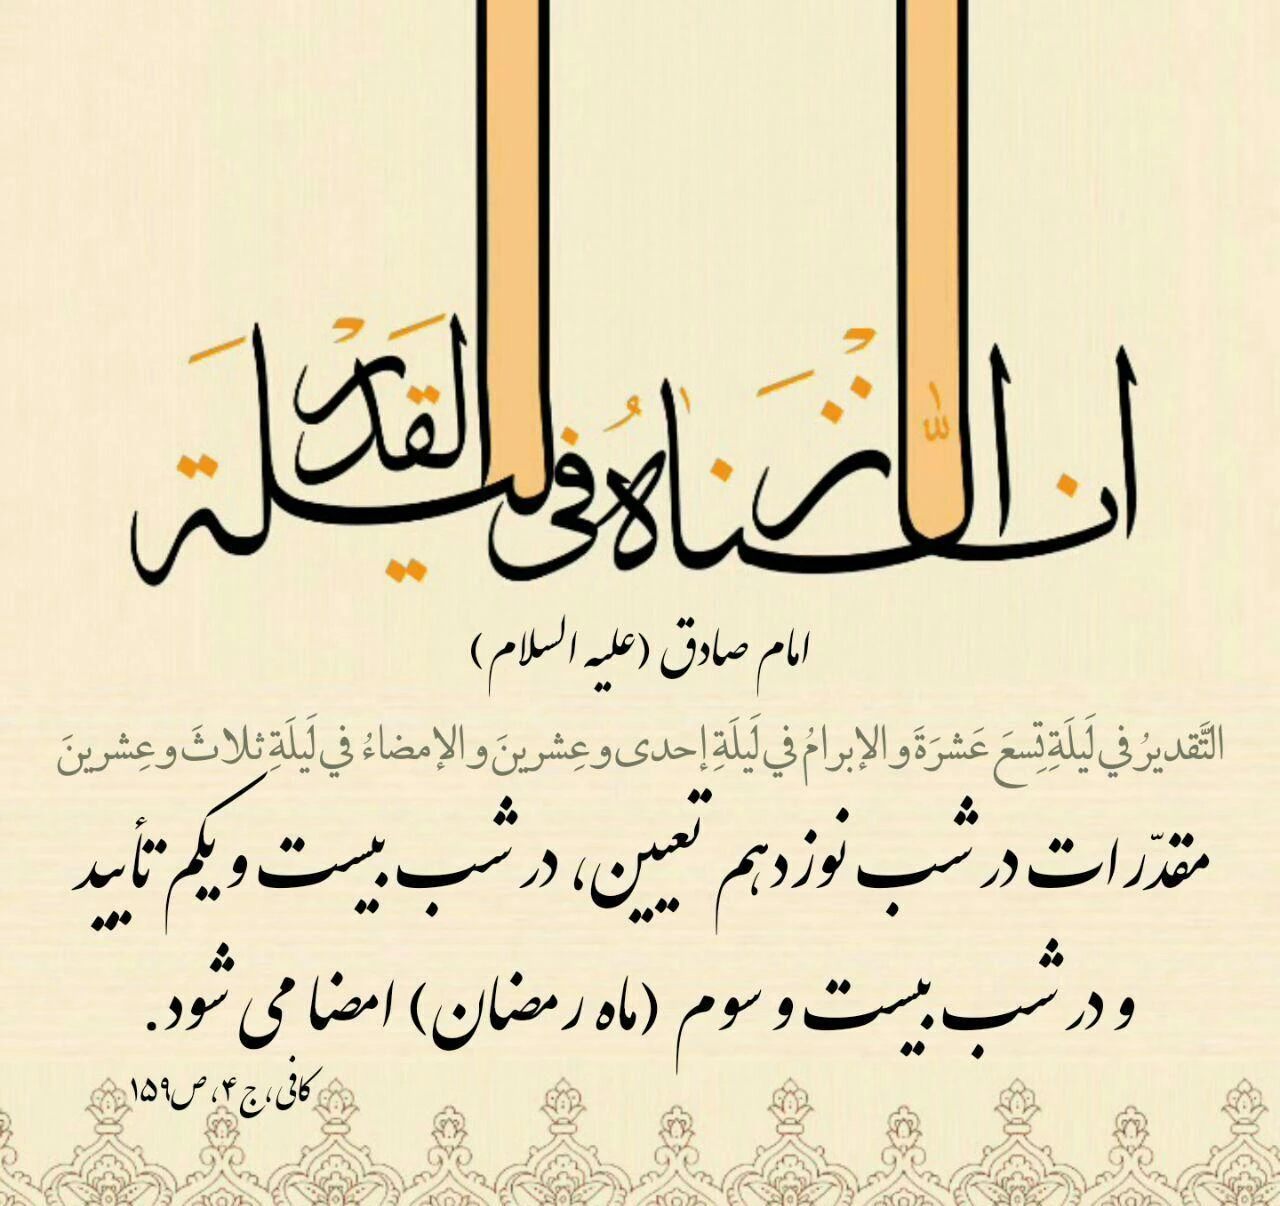 انا انزلناه فی لیلة القدر
امام صادق (علیه السلام)
التَّقديرُ في لَيلَةِ تِسعَ عَشرَةَ و الإبرامُ في لَيلَةِ إحدى و عِشرينَ و الإمضاءُ في لَيلَةِ ثلاثَ و عِشرينَ
مقدّرات در شب نوزدهم تعیین، در شب بیست و یکم تأیید
و در شب بیست و سوم (ماه رمضان) امضا می شود.
کافی، ج ۴، ص ۱۵۹